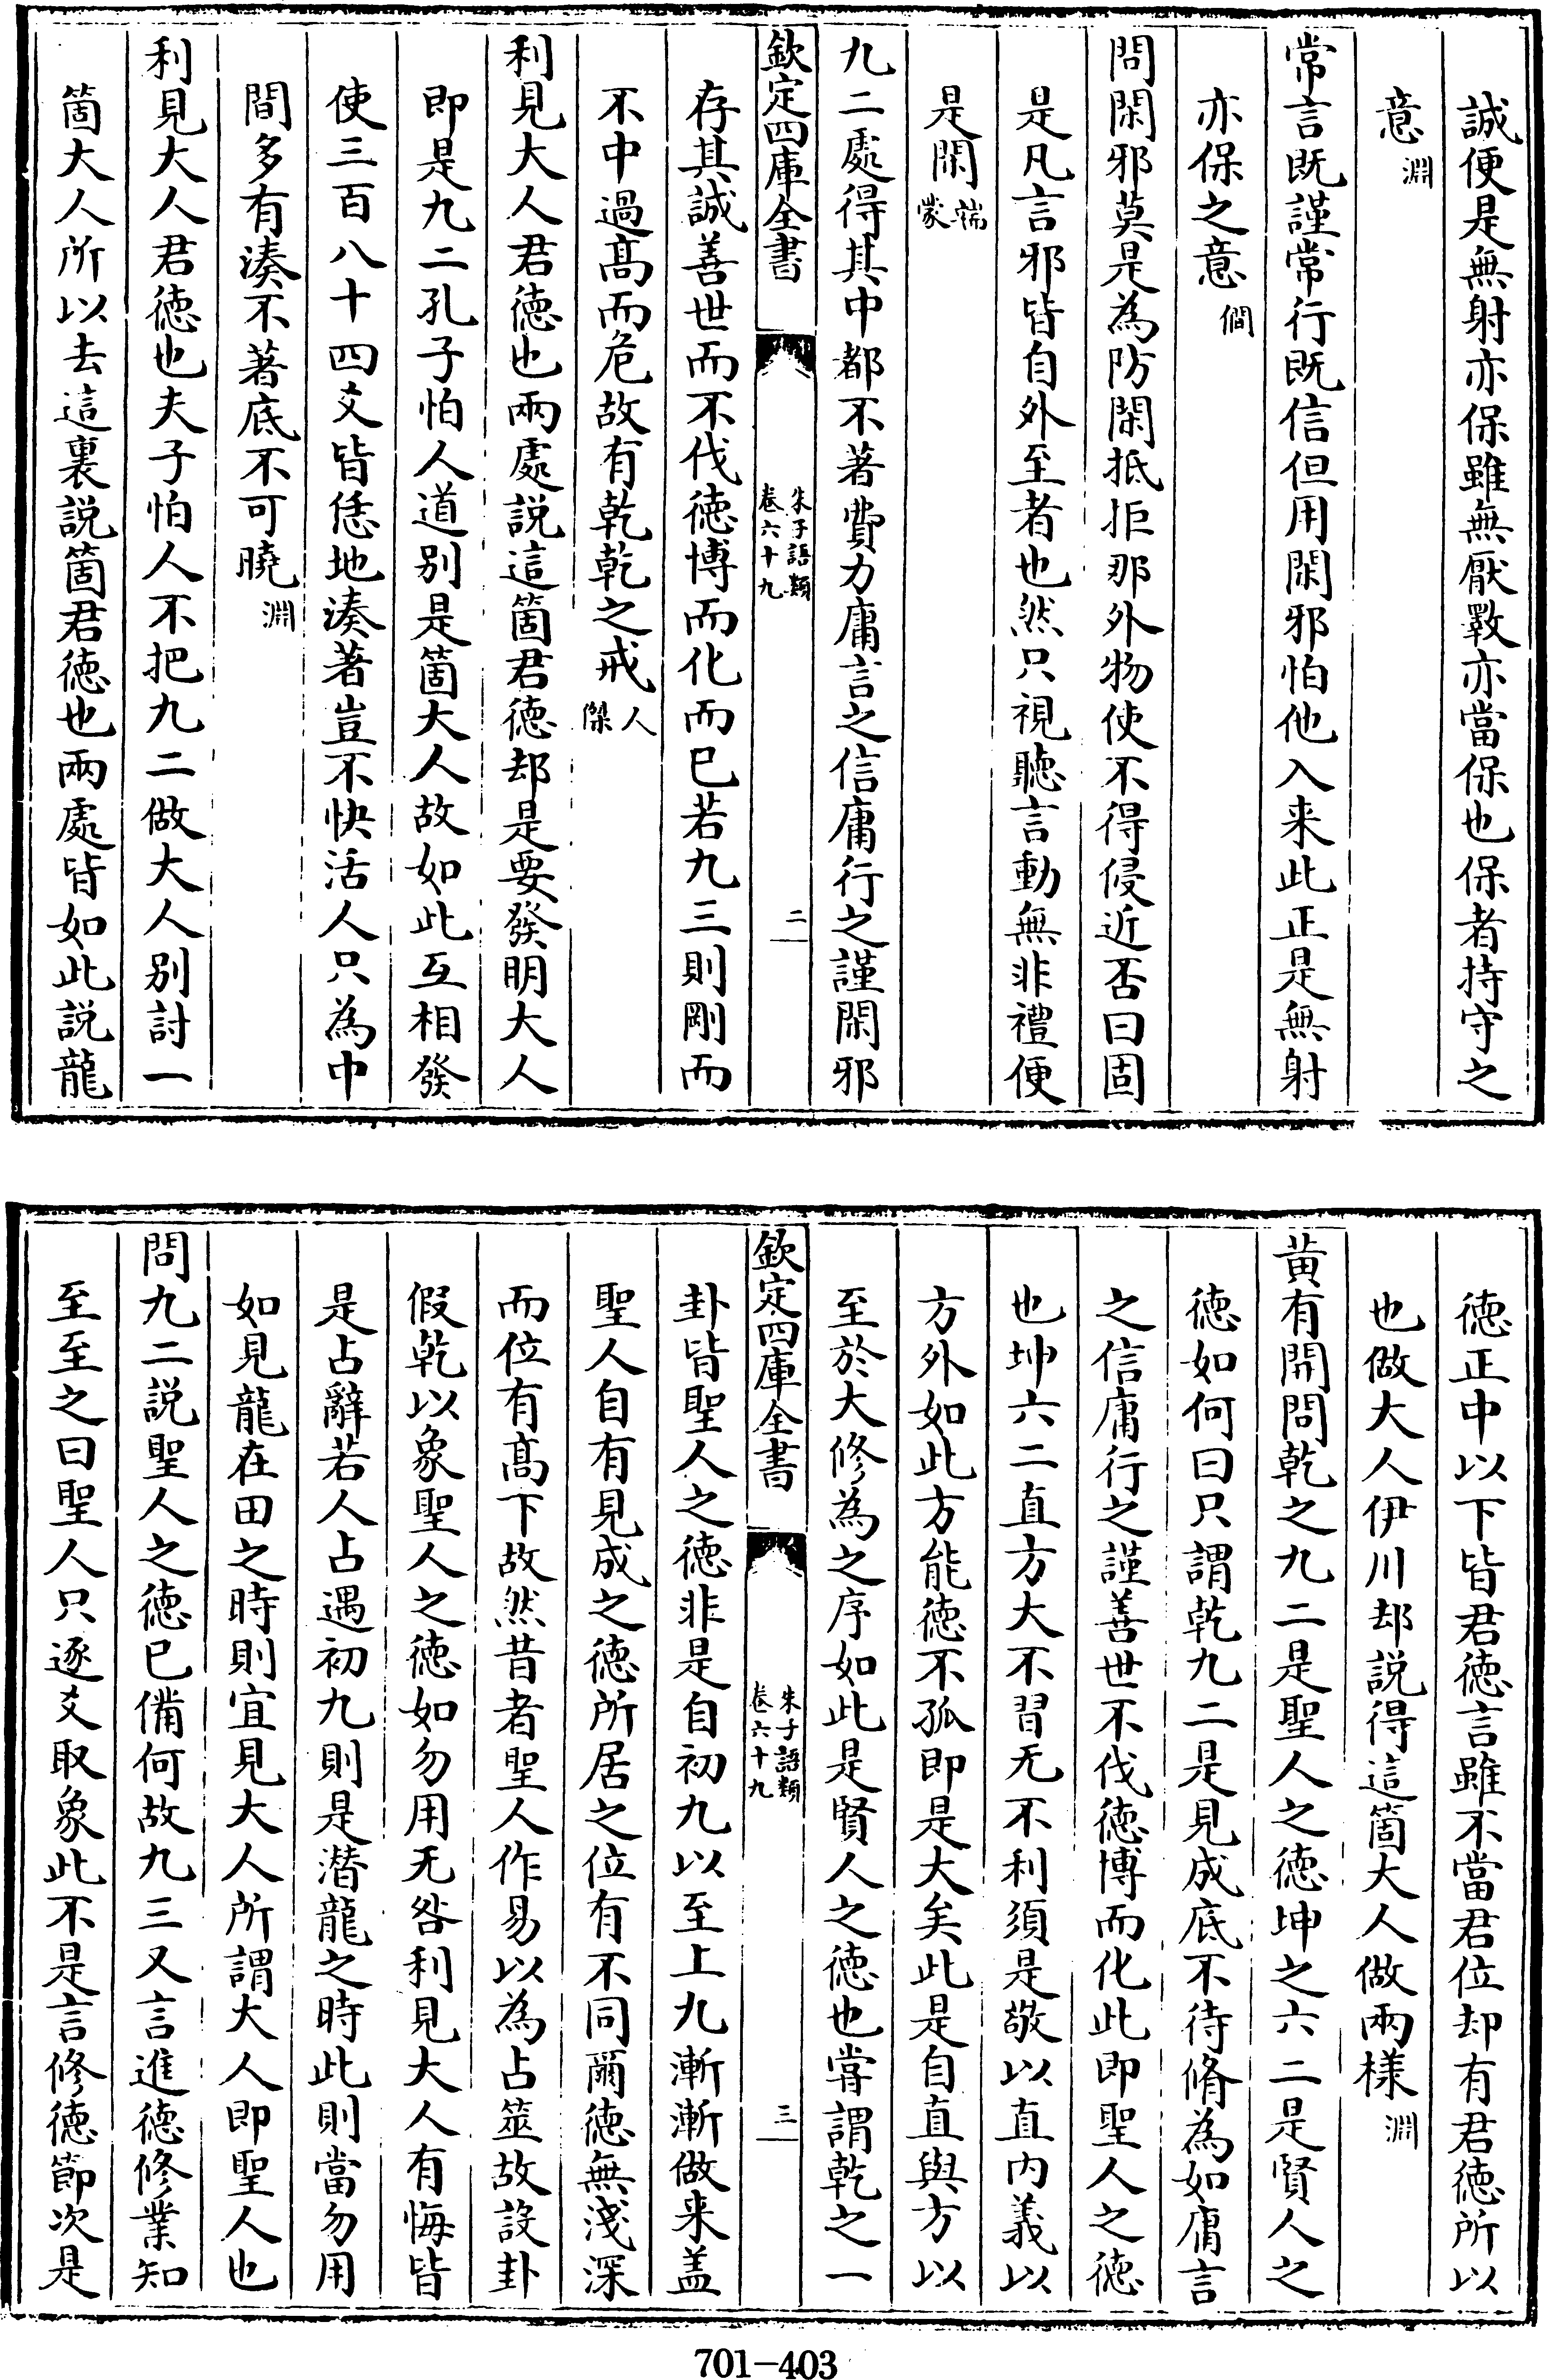 誠便是無射亦保雖無厭斁亦當保也保者持守之
意淵
常言既謹常行既信但用閑邪怕他入来此正是無射
亦保之意僩
問閑邪莫是為防閑抵拒那外物使不得侵近否曰固
是凡言邪皆自外至者也然只視聽言動無非禮便
是閑端蒙
九二處得其中都不著費力庸言之信庸行之謹閑邪
欽定四庫全書
朱子語類
卷六十九
二
存其誠善世而不伐徳博而化而已若九三則剛而
不中過髙而危故有乾乾之戒人傑
利見大人君徳也兩處説這箇君徳却是要發明大人
即是九二孔子怕人道别是箇大人故如此互相發
使三百八十四爻皆恁地湊著豈不快活人只為中
間多有湊不著底不可曉淵
利見大人君徳也夫子怕人不把九二做大人别討一
箇大人所以去這裏説箇君徳也兩處皆如此説龍
徳正中以下皆君徳言雖不當君位却有君徳所以
也做大人伊川却説得這箇大人做兩樣淵
黄有開問乾之九二是聖人之徳坤之六二是賢人之
徳如何曰只謂乾九二是見成底不待脩為如庸言
之信庸行之謹善世不伐徳博而化此即聖人之徳
也坤六二直方大不習无不利須是敬以直内義以
方外如此方能徳不孤即是大矣此是自直與方以
至於大修為之序如此是賢人之徳也嘗謂乾之一
欽定四庫全書
朱子語類
卷六十九
三
卦皆聖人之徳非是自初九以至上九漸漸做来盖
聖人自有見成之徳所居之位有不同爾徳無淺深
而位有髙下故然昔者聖人作易以為占筮故設卦
假乾以象聖人之徳如勿用无咎利見大人有悔皆
是占辭若人占遇初九則是潜龍之時此則當勿用
如見龍在田之時則宜見大人所謂大人即聖人也
問九二説聖人之徳已備何故九三又言進徳修業知
至至之曰聖人只逐爻取象此不是言修徳節次是
701-403